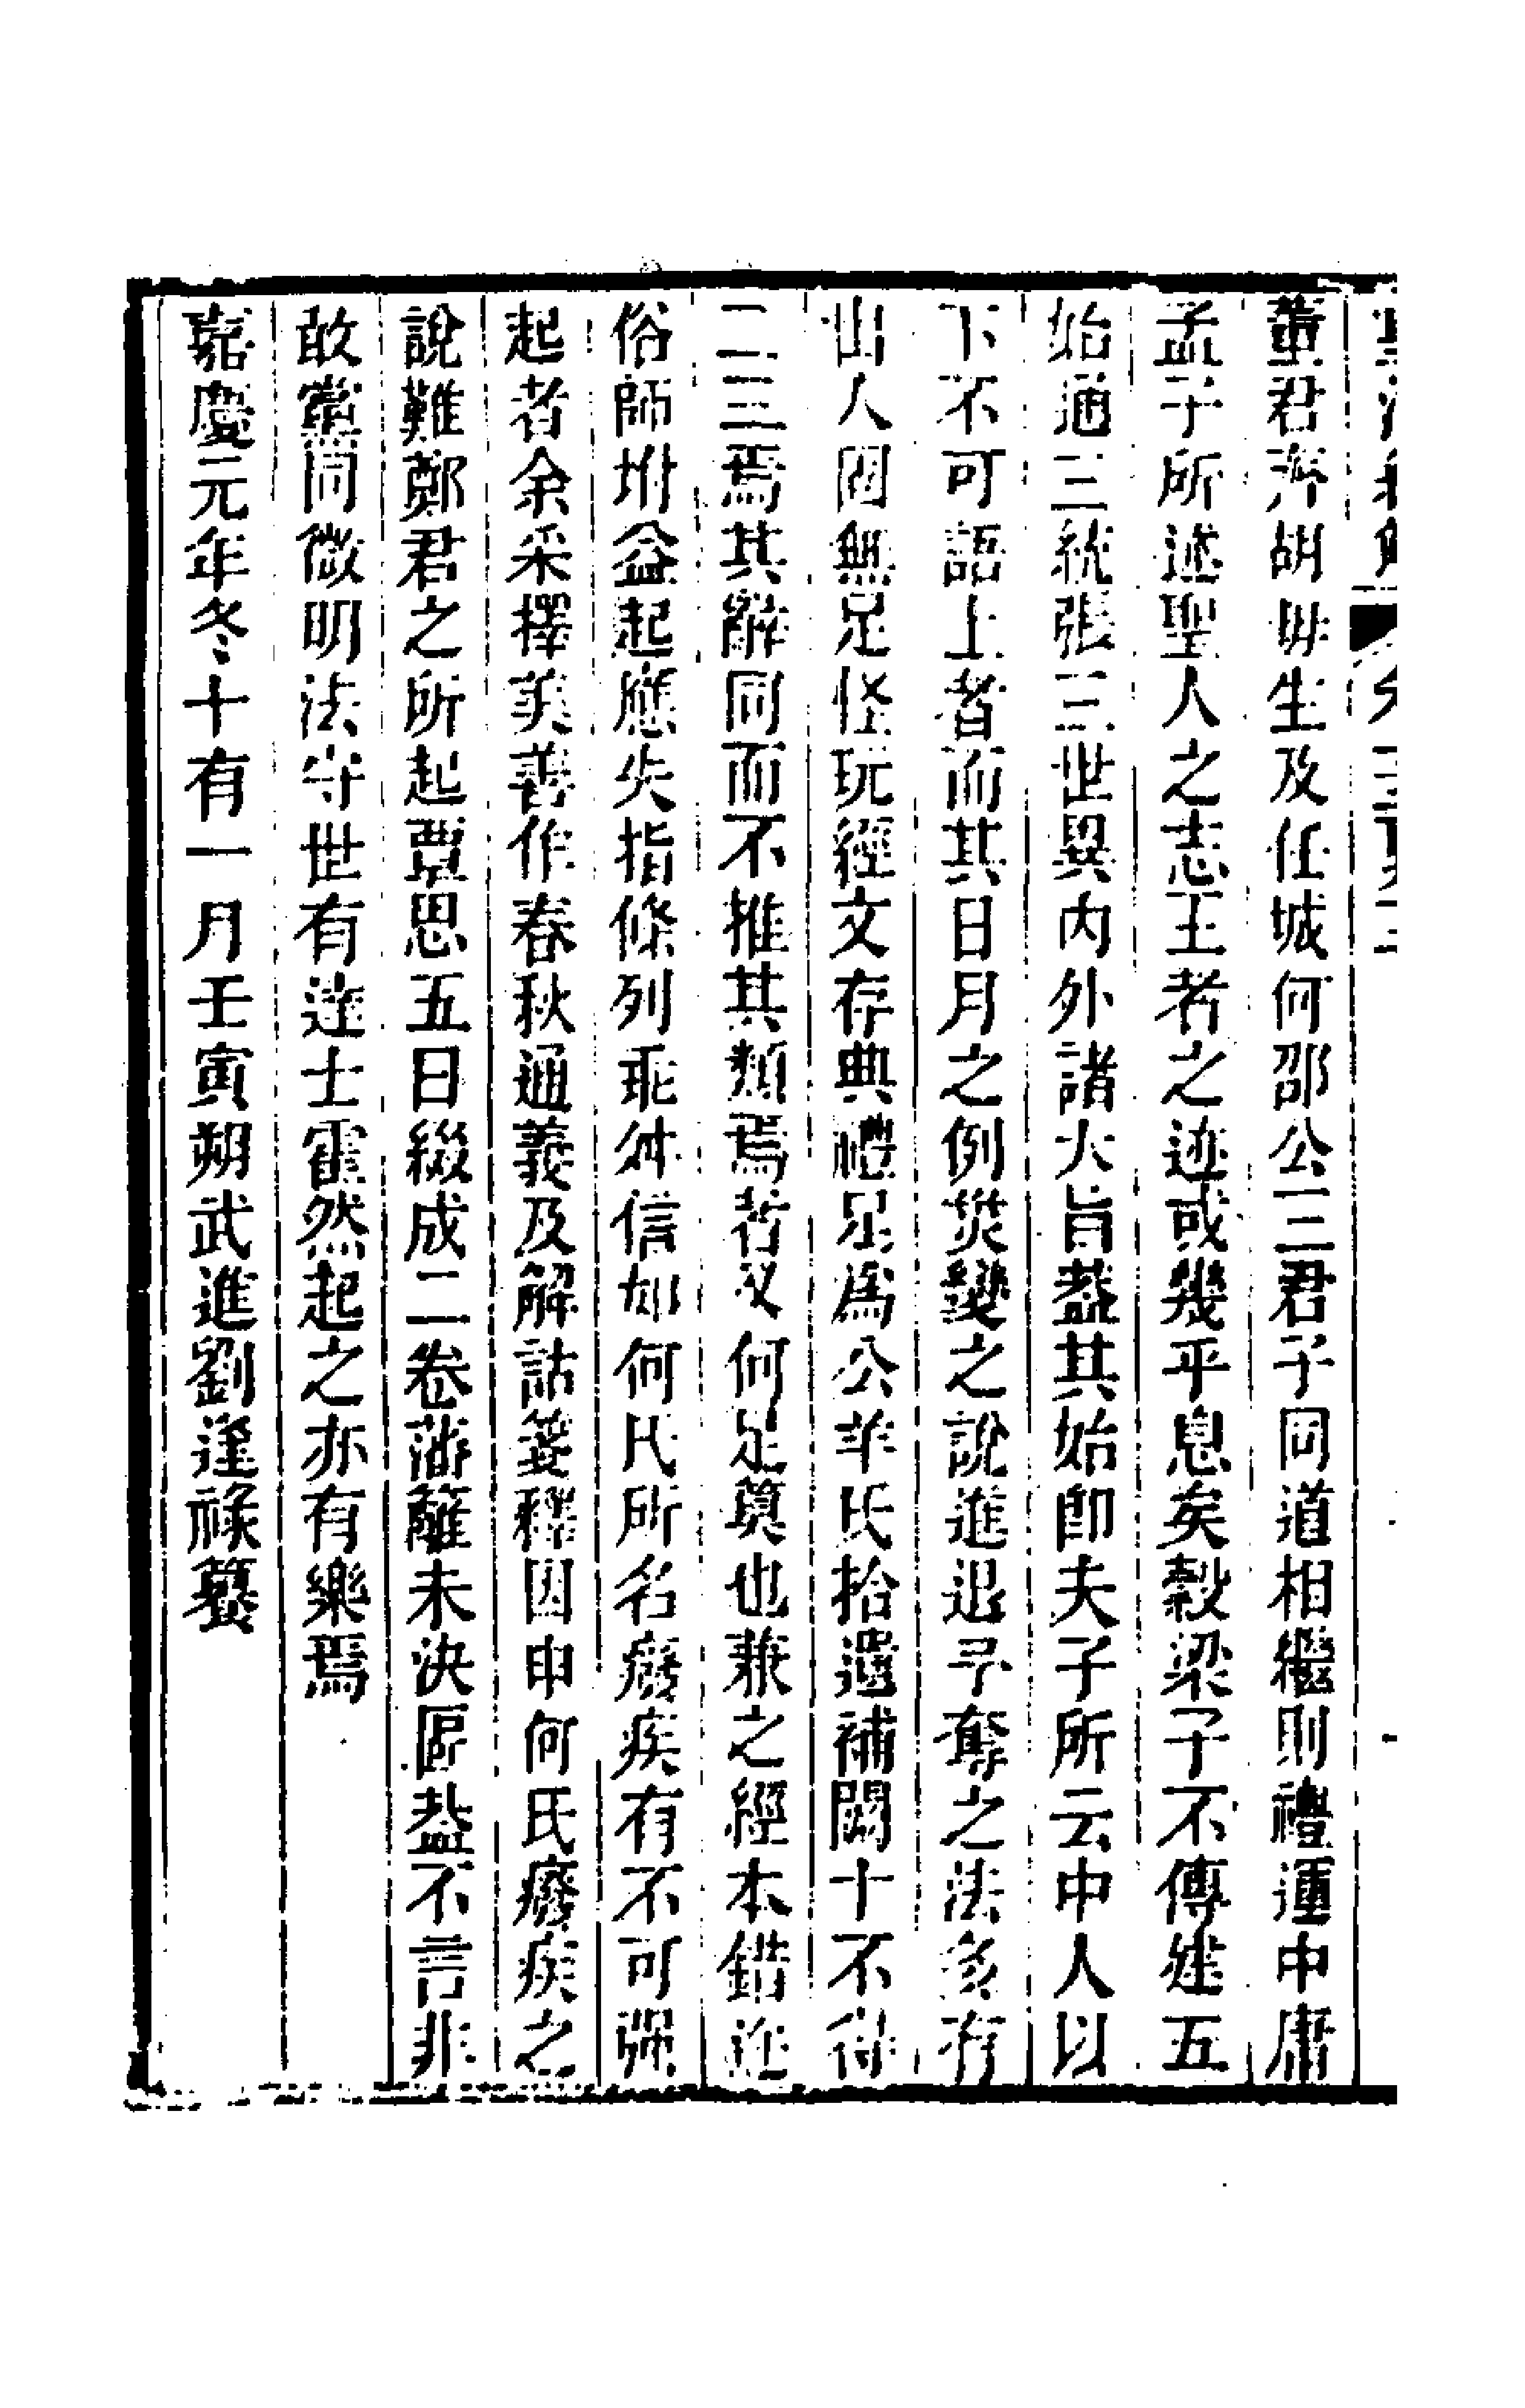 董君齊胡毋生及任城何邵公三君子同道相繼則禮運中庸
孟子所述聖人之志王者之迹或幾乎息矣穀梁子不傳建五
始通三統張三世異內外諸大旨葢其始卽夫子所云中人以
下不可語上者而其日月之例災變之說進退予奪之法多有
出入固無足怪玩經文存典禮足爲公羊氏拾遺補闕十不得
二三焉其辭同而不推其類焉若又何足算也兼之經本錯迕
俗師坿益起應失指條列乖舛信如何氏所名癈疾有不可强
起者余采擇美善作春秋通義及解詁箋釋因申何氏癈疾之
說難鄭君之所起覃思五日綴成二卷藩籬未決區葢不言非
敢黨同微明法守世有達士霍然起之亦有樂焉
嘉慶元年冬十有一月壬寅朔武進劉逢祿纂